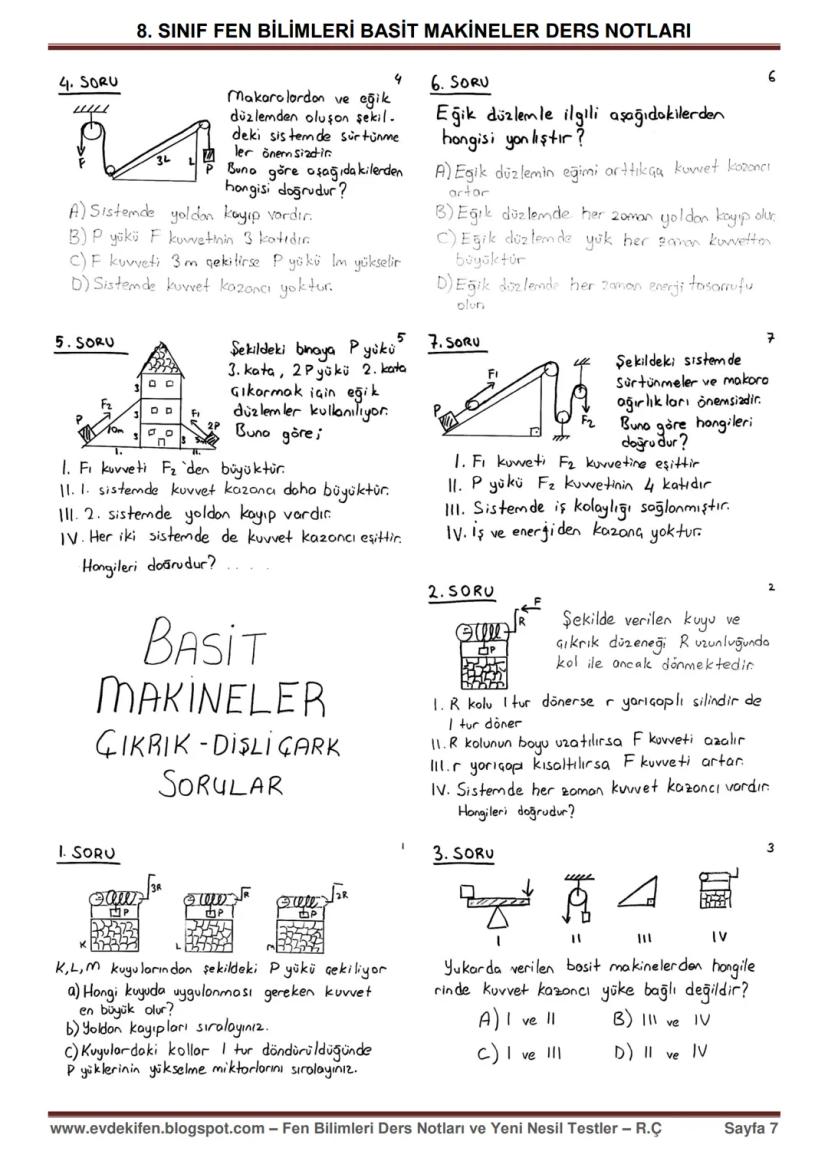 8. SINIF FEN BİLİMLERİ BASİT MAKİNELER DERS NOTLARI
4. SORU
4
F
3L
L
P
Makaralardan ve eğik
düzlemden oluşan şekil-
deki sistemde sürtünme
ler önemsizdir.
Buna göre aşağıdakilerden
hangisi doğrudur?
A) Sistemde yoldan kayıp vardır.
B) P yükü F kuvvetinin 3 katıdır.
C) F kuvveti 3m çekilirse P yükü 1m yükselir
D) Sistemde kuvvet kazancı yoktur.
5. SORU
5
P
F2
10m
3
3
3
F1
2P
3
5
I.
II.
Şekildeki binaya P yükü
3. kata, 2P yükü 2. kata
çıkarmak için eğik
düzlemler kullanılıyor.
Buna göre;
I. F1 kuvveti F2'den büyüktür.
II. 1. sistemde kuvvet kazancı daha büyüktür.
III. 2. sistemde yoldan kayıp vardır.
IV. Her iki sistemde de kuvvet kazancı eşittir.
Hangileri doğrudur? . . . . .
BASİT
MAKİNELER
ÇIKRIK - DİŞLİ ÇARK
SORULAR
1. SORU
1
3R
P
K
R
P
L
2R
P
M
K,L,M kuyularından şekildeki P yükü çekiliyor
a) Hangi kuyuda uygulanması gereken kuvvet
en büyük olur?
b) Yoldan kayıpları sıralayınız.
c) Kuyulardaki kollar 1 tur döndürüldüğünde
P yüklerinin yükselme miktarlarını sıralayınız.
6. SORU
6
Eğik düzlemle ilgili aşağıdakilerden
hangisi yanlıştır?
A) Eğik düzlemin eğimi arttıkça kuvvet kazancı
artar
B) Eğik düzlemde her zaman yoldan kayıp olur.
C) Eğik düzlemde yük her zaman kuvvetten
büyüktür
D) Eğik düzlemde her zaman enerji tasarrufu
olur.
7. SORU
7
P
F1
F2
Şekildeki sistemde
Sürtünmeler ve makara
ağırlıkları önemsizdir.
Buna göre hangileri
doğrudur?
I. F1 kuvveti F2 kuvvetine eşittir
II. P yükü F2 kuvvetinin 4 katıdır
III. Sistemde iş kolaylığı sağlanmıştır.
IV. İş ve enerjiden kazanç yoktur.
2. SORU
2
F
R
P
Şekilde verilen kuyu ve
çıkrık düzeneği R uzunluğunda
kol ile ancak dönmektedir.
I. R kolu 1 tur dönerse r yarıçaplı silindir de
1 tur döner
II. R kolunun boyu uzatılırsa F kuvveti azalır
III. r yarıçapı kısaltılırsa F kuvveti artar.
IV. Sistemde her zaman kuvvet kazancı vardır.
Hangileri doğrudur?
3. SORU
3
I
II
III
IV
Yukarda verilen basit makinelerden hangile
rinde kuvvet kazancı yüke bağlı değildir?
A) I ve II
B) III ve IV
C) I ve III
D) II ve IV
www.evdekifen.blogspot.com – Fen Bilimleri Ders Notları ve Yeni Nesil Testler – R.Ç
Sayfa 7